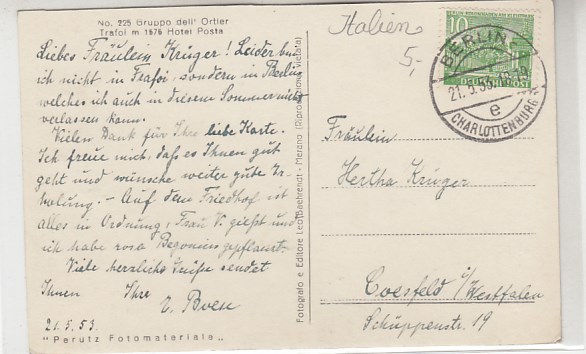 No. 225 Gruppo dell' Ortler
Trafoi m 1576 Hotel Posta
Liebes Fräulein Krüger! Leider bin
ich nicht in Trafoi, sondern in Berlin
welches ich auch in diesem Sommer nicht
verlassen kann.
Vielen Dank für Ihre liebe Karte.
Ich freue mich, daß es Ihnen gut
geht und wünsche weiter gute Er-
holung. – Auf dem Friedhof ist
alles in Ordnung, Frau V. gießt und
ich habe rosa Begonien gepflanzt.
Viele herzliche Grüße sendet
Ihnen Ihre
21.5.53.
"Perutz Fotomateriale"
Fotografo e Editore Leo Baehrendt - Merano (Riproduzione vietata)
Italien
5,-
10
DEUTSCHE POST
BERLIN
21.5.53
e
CHARLOTTENBURG
Fräulein
Hertha Krüger
Coesfeld i/Westfalen
Schüppenstr. 19